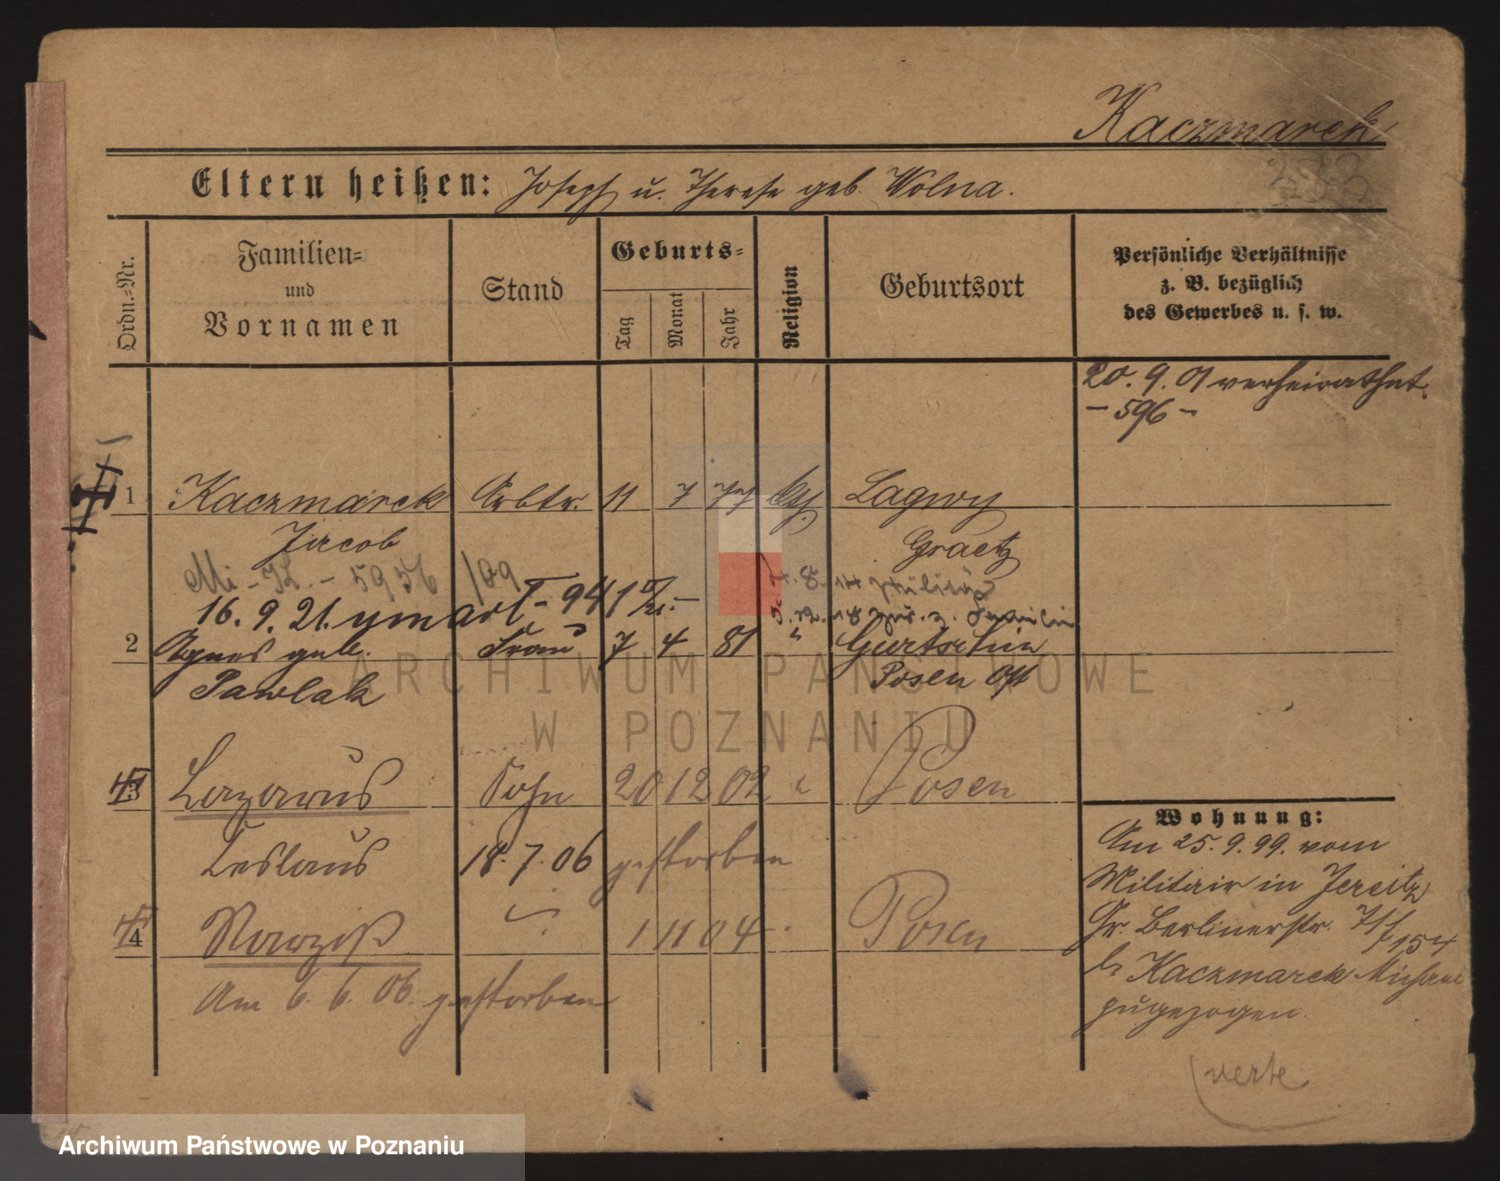 Kaczmarek
Eltern heißen: Joseph u. Therese geb. Wolna.
Ordn.-Nr.
Familien-
und
Vornamen
Stand
Geburts-
Tag
Monat
Jahr
Religion
Geburtsort
Persönliche Verhältnisse
z. B. bezüglich
des Gewerbes u. s. w.
20. 9. 01 verheirathet.
- 596 -
1 Kaczmarek Arbtr. 11 7 77 kth. Lagwy
Jacob Graetz
Mi - - 5956 /09
4. 8. 14 Militär
16. 9. 21. 94
2 Agnes geb. Frau 7 4 81 " Gurtschin
Pawlak Posen Ost
3 Lazarus Sohn 20 12 02 " Posen
Ceslaus 18. 7. 06 gestorben
4 Narziß 1 11 04 Posen
Am 6. 6. 06. gestorben
Wohnung:
Am 25. 9. 99. vom
Militair in Jersitz
Gr. Berlinerstr.
b. Kaczmarek Michael
zugezogen.
verte
ARCHIWUM PAŃSTWOWE
W POZNANIU
Archiwum Państwowe w Poznaniu